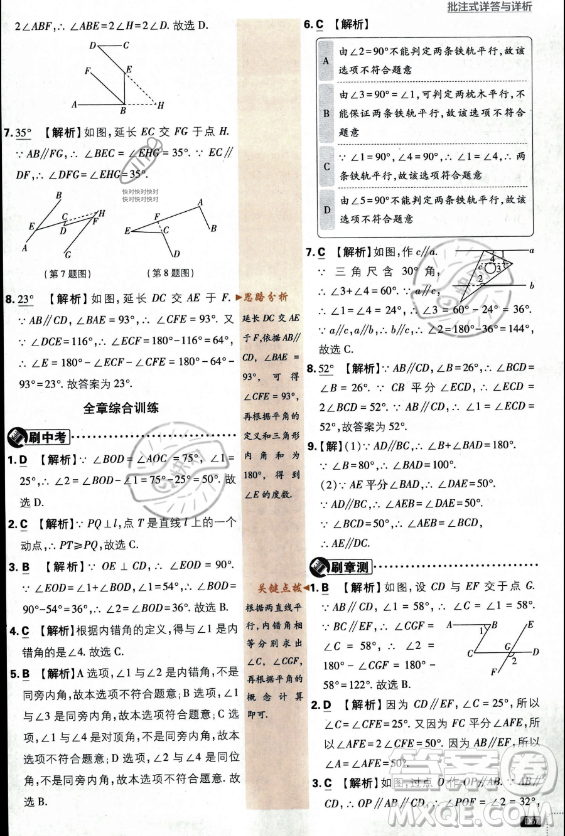 批注式详答与详析
2∠ABF,∴∠ABE=2∠H=2∠F. 故选 D.
D C
F E
A B H
7.35° 【解析】如图,延长 EC 交 FG 于点 H.
∵AB∥FG,∴∠BEC=∠EHG=35°. ∵EC∥
DF,∴∠DFG=∠EHG=35°.
快对快对快对
快对快对快对
B D H C F E A G
(第 7 题图)
A E F C B D
(第 8 题图)
8.23° 【解析】如图,延长 DC 交 AE 于 F.
∵AB∥CD,∠BAE=93°,∴∠CFE=93°. 又
∵∠DCE=116°,∴∠ECF=180°-116°=64°,
∴∠E=180°-∠ECF-∠CFE=180°-64°-
93°=23°. 故答案为 23°.
全章综合训练
刷中考
1.D 【解析】∵∠BOD=∠AOC=75°,∠1=
25°,∴∠2=∠BOD-∠1=75°-25°=50°. 故
选 D.
2.C 【解析】∵PQ⊥l,点 T 是直线 l 上的一个
动点,∴PT≥PQ. 故选 C.
3.B 【解析】∵OE⊥CD,∴∠EOD=90°.
∵∠EOD=∠1+∠BOD,∠1=54°,∴∠BOD=
90°-54°=36°. 故选 B.
4.C 【解析】根据内错角的定义,得与∠1 是内
错角的是∠4. 故选 C.
5.B 【解析】A 选项,∠1 与∠2 是内错角,不是
同旁内角,故本选项不符合题意;B 选项,∠1
与∠3 是同旁内角,故本选项符合题意;C 选
项,∠1 与∠4 是对顶角,不是同旁内角,故本
选项不符合题意;D 选项,∠1 与∠5 是同位
角,不是同旁内角,故本选项不符合题意. 故
选 B.
思路分析
延长 DC 交 AE
于 F,依据 AB∥
CD,∠BAE=
93°,可得
∠CFE=93°,
再根据平角的
定义和三角形
内角和为
180°,得到
∠E 的度数.
关键点拨
根据两直线平
行,内错角相
等分别求出
∠C,∠CGF,
再根据平角的
概念计算
即可.
6.C 【解析】
A 由∠2=90°不能判定两条铁轨平行,故该
选项不符合题意
B 由∠3=90°=∠1,可判定两枕木平行,不
能保证两条铁轨平行,故该选项不符合题意
C ∵∠1=90°,∠4=90°,∴∠1=∠4,∴两
条铁轨平行,故该选项符合题意
D 由∠5=90°不能判定两条铁轨平行,故该
选项不符合题意
7.C 【解析】如图,作 c∥a.
∵三角尺含 30°角,
∴∠3+∠4=60°. ∵a∥c,
∴∠1=∠4=24°,∴∠3=60°-24°=36°.
∵a∥c,a∥b,∴b∥c,∴∠2=180°-36°=144°,
故选 C.
a
4
3
b
8.52° 【解析】∵AB∥CD,∠B=26°,∴∠BCD=
∠B=26°. ∵CB 平分∠ECD,∴∠ECD=
2∠BCD=52°. ∵AB∥CD,∴∠1=∠ECD=
52°. 故答案为 52°.
9.【解】(1)∵AD∥BC,∴∠B+∠BAD=180°.
∵∠B=80°,∴∠BAD=100°.
(2)∵AE 平分∠BAD,∴∠DAE=50°.
∵AD∥BC,∴∠AEB=∠DAE=50°.
∵∠BCD=50°,∴∠AEB=∠BCD,
∴AE∥DC.
刷章测
1.B 【解析】如图,设 CD 与 EF 交于点 G.
∵AB∥CD,∴∠C=∠1=58°.
∵BC∥EF,∴∠CGF=
∠C=58°,∴∠2=
180°-∠CGF=180°-
58°=122°. 故选 B.
A B E
1
C G D
2
F
2.D 【解析】因为 CD∥EF,∠C=25°,所以
∠C=∠CFE=25°. 又因为 FC 平分∠AFE,所
以∠AFE=2∠CFE=50°. 因为 AB∥EF,所以
∠A=∠AFE=50°. 故选 D.
3.C 【解析】如图,过点 O 作 OP∥AB. ∵AB∥
CD,∴OP∥AB∥CD,∴∠POF=∠2=32°,